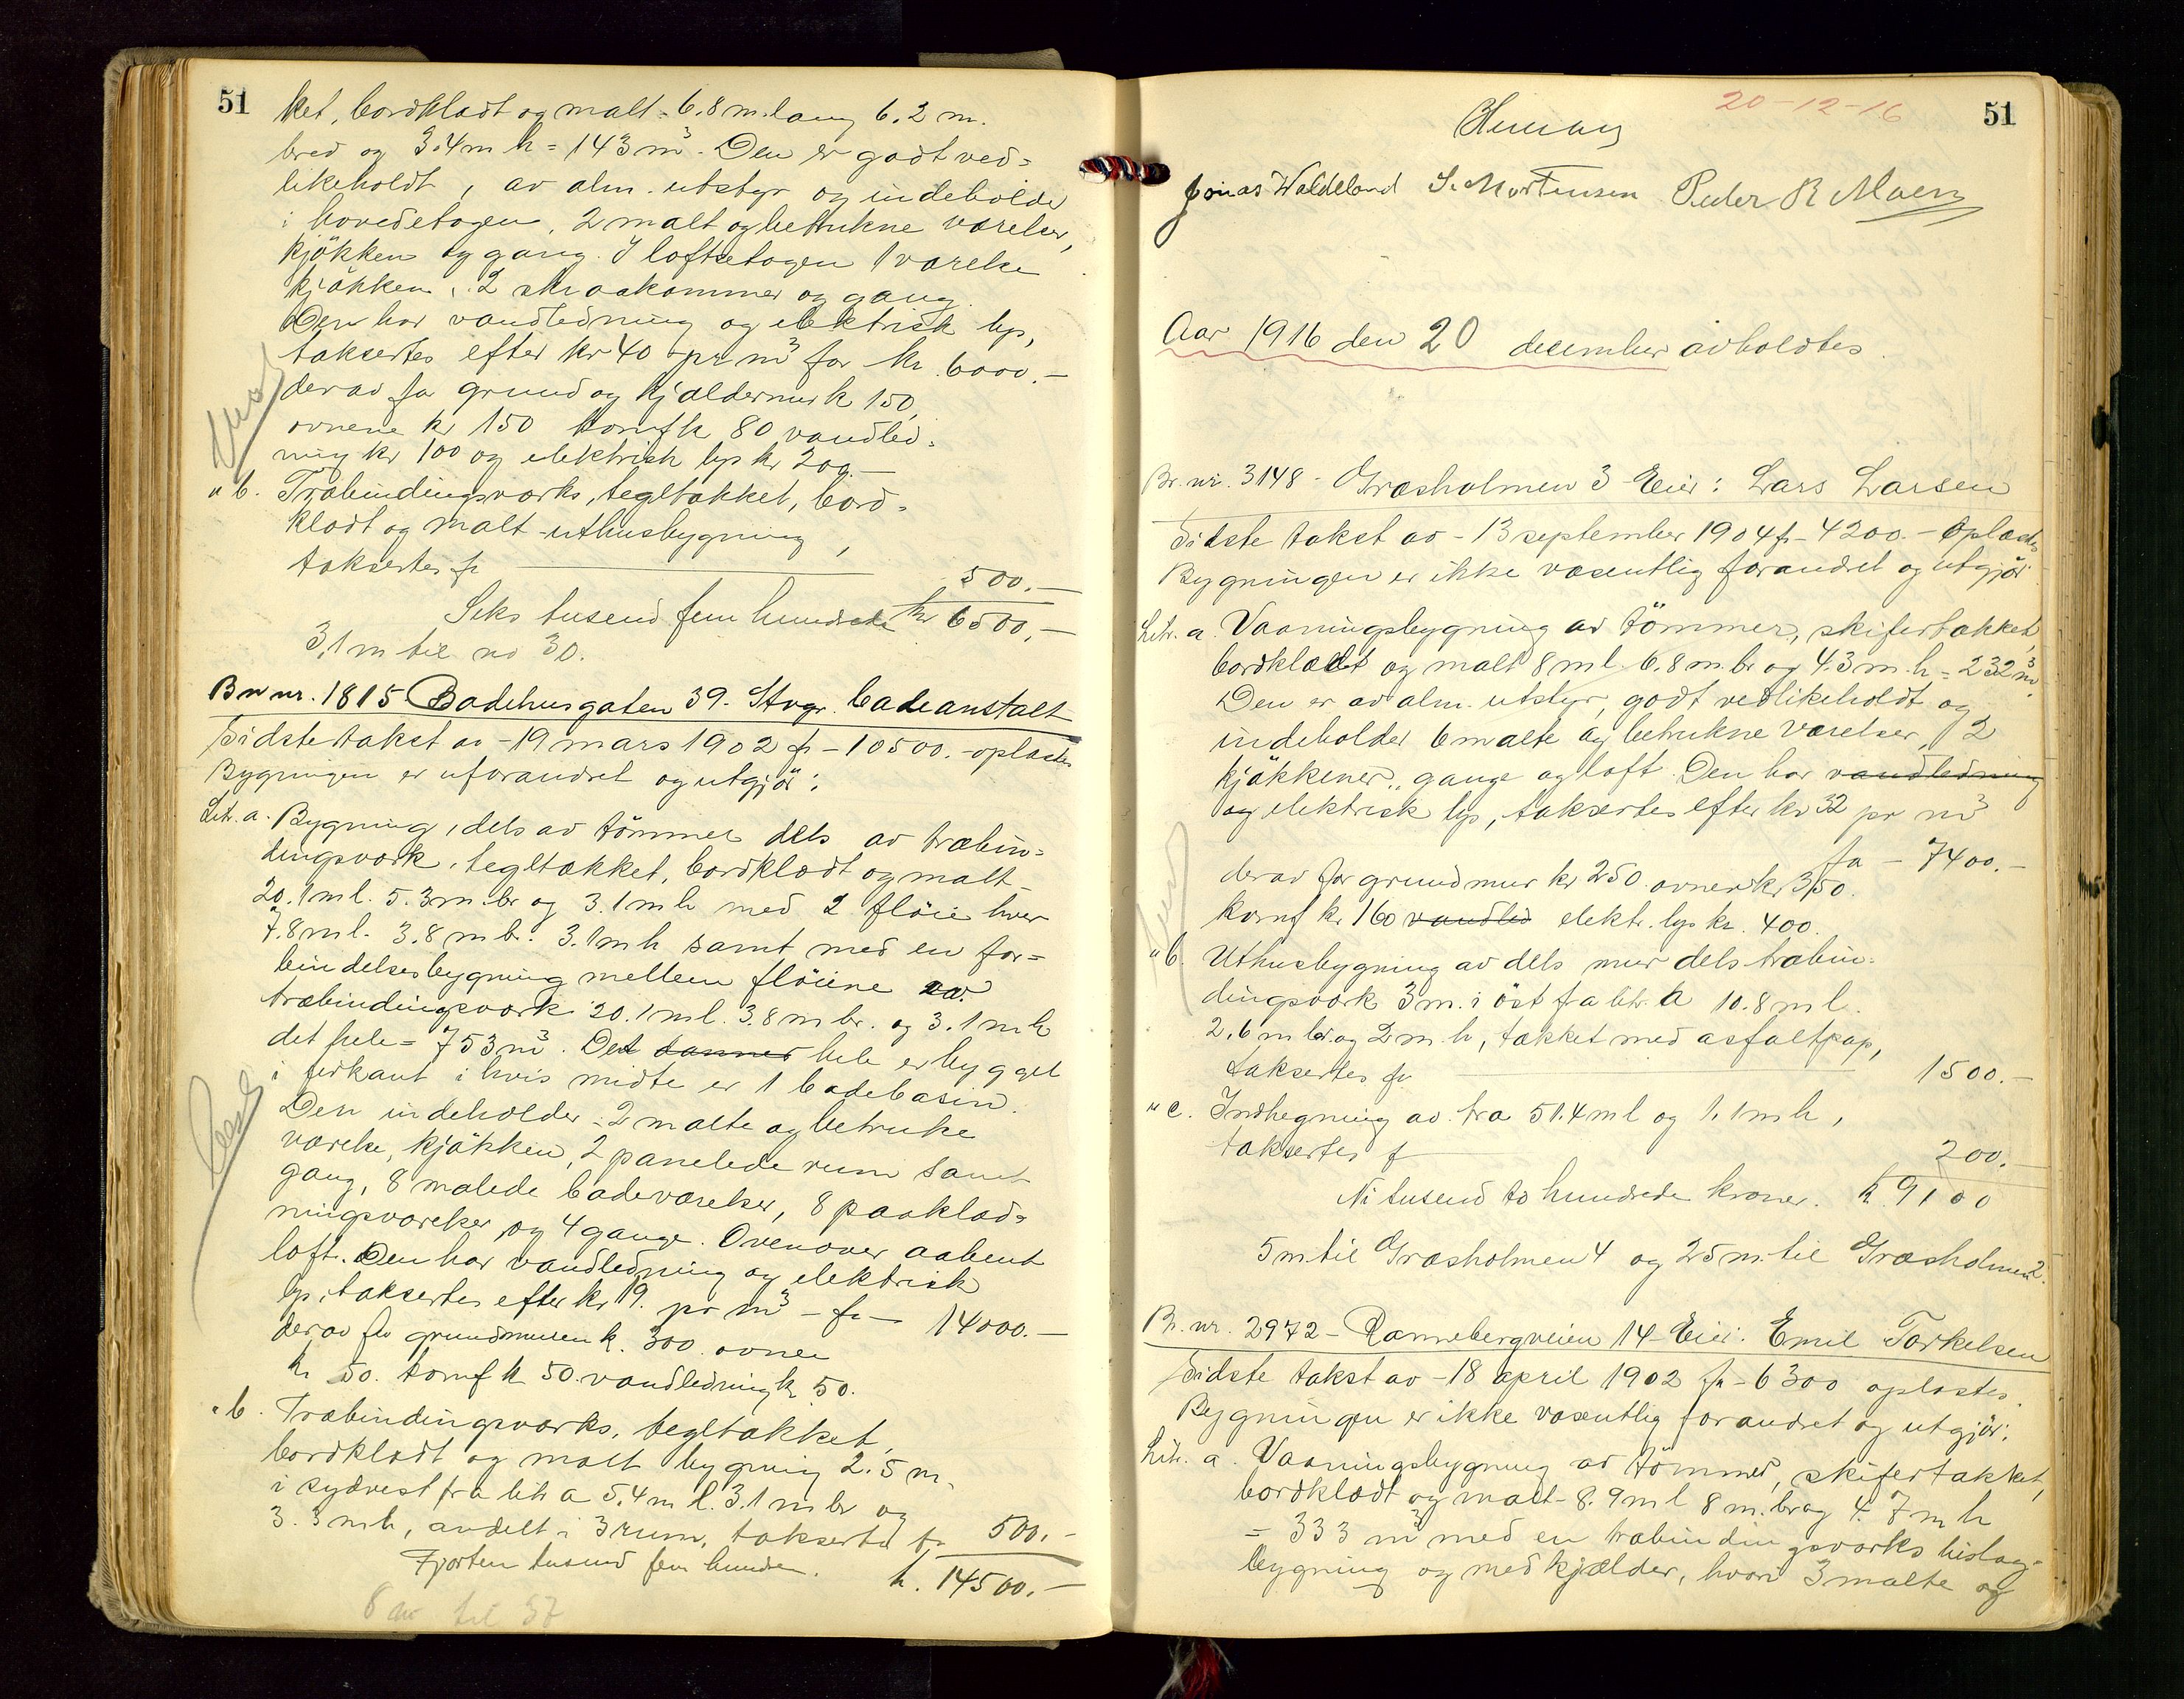 51
ket, bordklædt og malt = 6.8 m. lang 6.2 m.
bred og 3.4 m h = 143 m³. Den er godt ved=
likeholdt, av alm. utstyr og indeholder
i hovedetagen, 2 malt og betrukne værelser,
kjøkken og gang. I loftsetagen 1 værelse
kjøkken, 2 skraakammer og gang.
Den har vandledning og elektrisk lys,
taksertes efter kr 40 pr m³ for kr. 6000.-
derav for grund og kjældermur k 150,
ovnene kr 150 komf k 80 vandled=
ning kr 100 og elektrisk lys kr 200.-
" b. Træbindingsværks, tegltækket, bord=
klædt og malt uthusbygning,
taksertes fr 500.-
Seks tusend fem hundrede kr 6500.-
3,1 m til no 30.
Br nr. 1815 Badehusgaten 39. Stvgr. badeanstalt
Sidste takst av - 19 mars 1902 fr - 10500.- oplæstes
Bygningen er uforandret og utgjør:
Litr. a. Bygning, dels av tömmer dels av træbin=
dingsværk, tegltækket, bordklædt og malt -
20.1 m l. 5.3 m. br og 3.1 m h med 2 flöie hver
7.8 m l. 3.8 m b. 3.1 m h samt med en for=
bindelsesbygning mellem flöiene av
træbindingsværk 20.1 m l. 3.8 m br. og 3.1 m h
det hele = 753 m³. Det danner hele er bygget
i firkant i hvis midte er 1 badebasin.
Den indeholder = 2 malte og betrukne
værelse, kjøkken, 2 panelede rum samt
gang, 8 malede badeværelser, 8 paaklæd=
ningsværelser og 4 gange. Ovenover aabent
loft. Den har vandledning og elektrisk
lys, taksertes efter kr 19. pr m³ - fr - 14000.-
derav for grundmuren k. 300. ovnen
kr 50. komf k 50. vandledning k 50.
" b. Træbindingsværks, tegltækket,
bordklædt og malt bygning 2.5 m.
i sydvest fra litr a 5.4 m l. 3.1 m br og
3.3 m h, avdelt i 3 rum, taksertes fr 500.-
Fjorten tusend fem hundre. k. 14500.-
8 m til 37
20-12-16
51
Jonas Waldeland S. Mortensen Peder R Moen
Aar 1916 den 20 december avholdtes
Br. nr. 3148 - Græsholmen 3 Eier: Lars Larsen
Sidste takst av - 13 september 1904 fr - 4200.- oplæstes
Bygningen er ikke væsentlig forandret og utgjør
Litr. a. Vaaningsbygning av tömmer, skifertækket,
bordklædt og malt 8 m l 6.8 m. br og 4.3 m. h = 232 m³.
Den er av alm. utstyr, godt vedlikeholdt og
indeholder 6 malte og betrukne værelser, 2
kjøkkener, gange og loft. Den har vandledning
og elektrisk lys, taksertes efter kr 32 pr m³
fr - 7400.-
derav for grundmur kr 250 ovner kr 350.
komf kr 160 vandled elektr. lys kr. 400.
" b. Uthusbygning av dels mur dels træbin=
dingsværk 3 m. i öst fra litr. a 10.8 m l.
2.6 m br og 2 m. h, tækket med asfaltpap,
taksertes fr 1500.-
" c. Indhegning av træ 51.4 m l og 1.1 m h,
taksertes f 200.-
Ni tusend to hundrede kroner. k. 9100
5 m til Græsholmen 4 og 25 m. til Græsholmen 2.
Br. nr. 2972 - Rannebergveien 14 - Eier: Emil Torkelsen
Sidste takst av - 18 april 1902 fr - 6300 oplæstes.
Bygningen er ikke væsentlig forandret og utgjør:
Litr. a. Vaaningsbygning av tömmer, skifertækket,
bordklædt og malt - 8.9 m l 8 m. br og 4.7 m h
= 333 m³ med en træbindingsværks bislag-
bygning og med kjælder, hvori 3 malte og